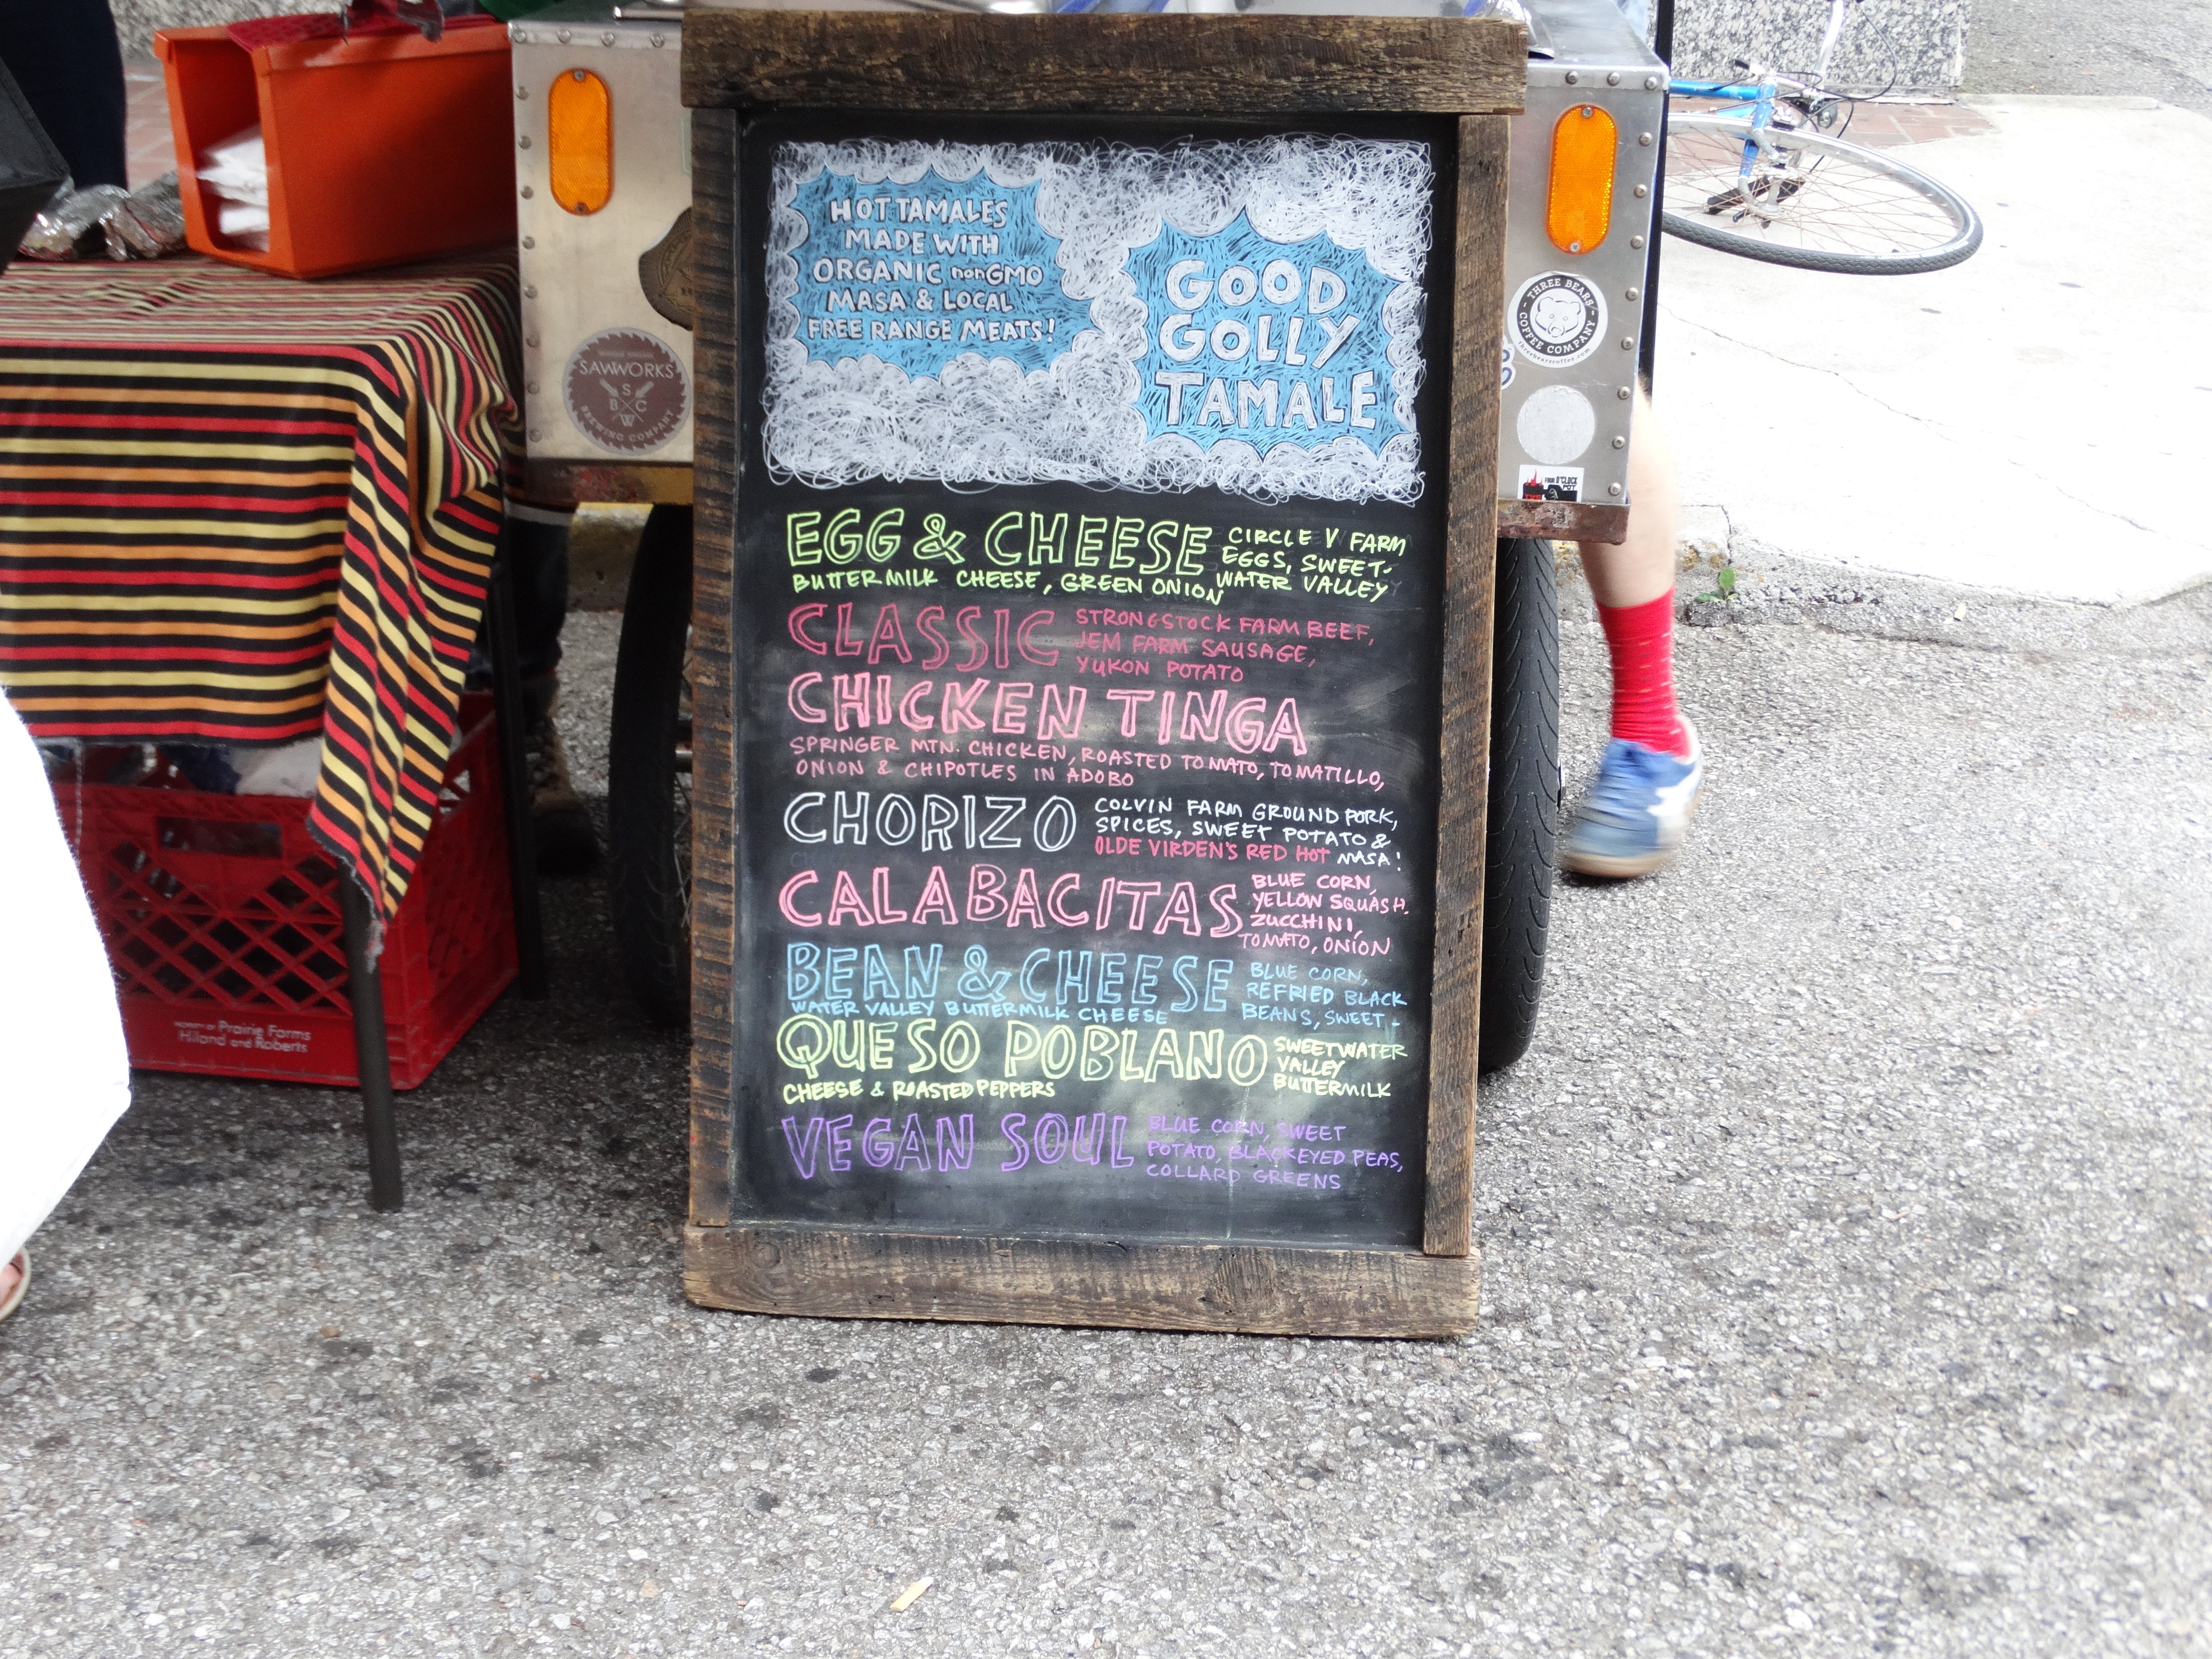 HOT TAMALES
MADE WITH
ORGANIC nonGMO
MASA & LOCAL
FREE RANGE MEATS!
GOOD
GOLLY
TAMALE
EGG & CHEESE
CIRCLE V FARM
EGGS, SWEET-
WATER VALLEY
BUTTERMILK CHEESE, GREEN ONION
CLASSIC
STRONGSTOCK FARM BEEF,
JEM FARM SAUSAGE,
YUKON POTATO
CHICKEN TINGA
SPRINGER MTN. CHICKEN, ROASTED TOMATO, TOMATILLO,
ONION & CHIPOTLES IN ADOBO
CHORIZO
COLVIN FARM GROUND PORK,
SPICES, SWEET POTATO &
OLDE VIRDEN'S RED HOT MASA!
CALABACITAS
BLUE CORN,
YELLOW SQUASH,
ZUCCHINI,
TOMATO, ONION
BEAN & CHEESE
BLUE CORN,
REFRIED BLACK
BEANS, SWEET-
WATER VALLEY BUTTERMILK CHEESE
QUESO POBLANO
SWEETWATER
VALLEY
BUTTERMILK
CHEESE & ROASTED PEPPERS
VEGAN SOUL
BLUE CORN, SWEET
POTATO, BLACKEYED PEAS,
COLLARD GREENS
SAWWORKS
S
B C
W
BREWING COMPANY
THREE BEARS
COFFEE COMPANY
threebearscoffee.com
FOUR O'CLOCK
PROPERTY OF Prairie Farms
Hiland and Roberts